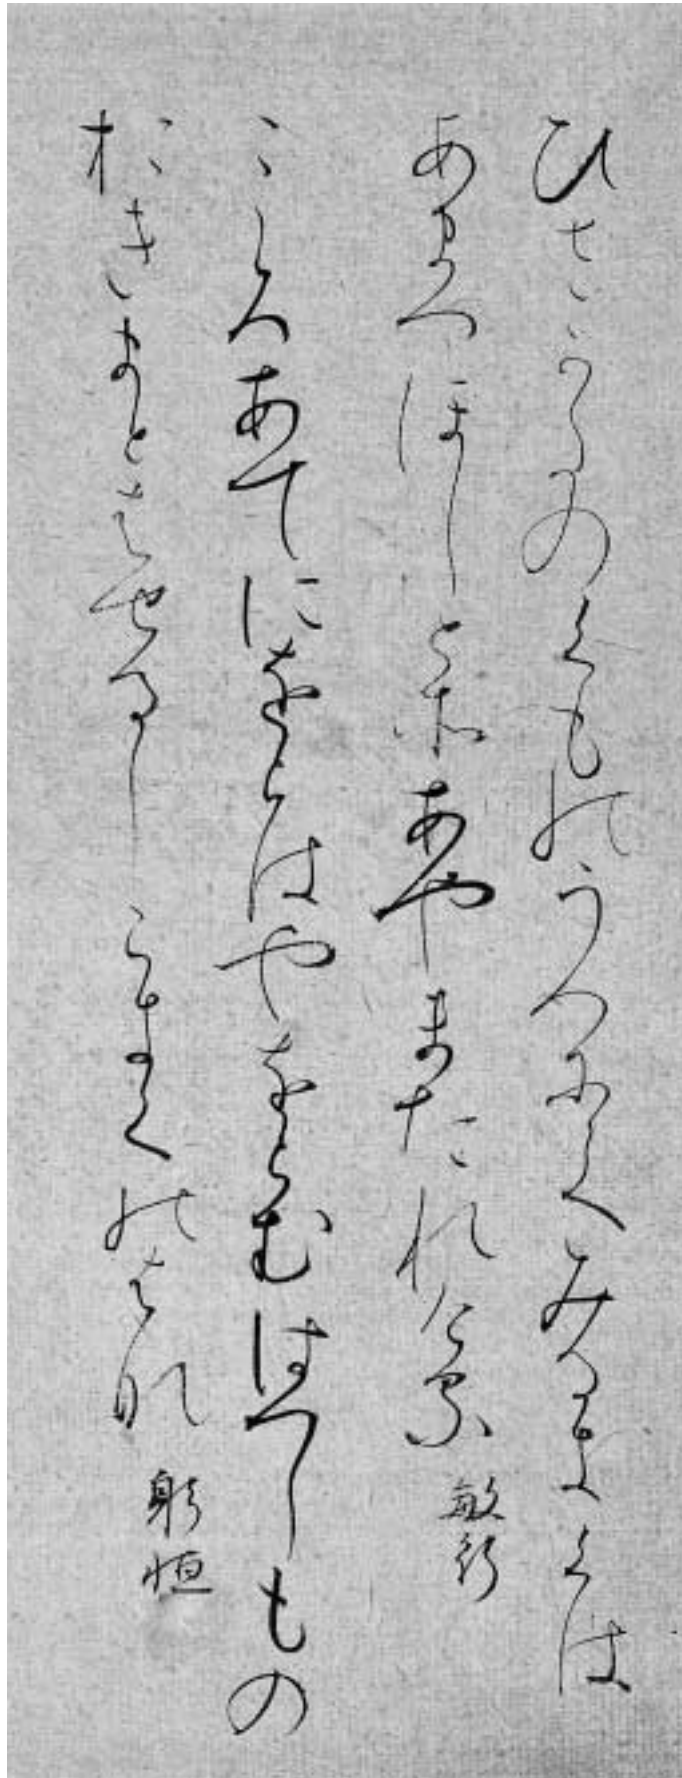 ひさかたのくものうへにてみるきくは
あまつほしとそあやまたれける 敏行
こゝろあてにをらはやをらむはつしもの
おきまとはせるしらきくのはな 躬恒